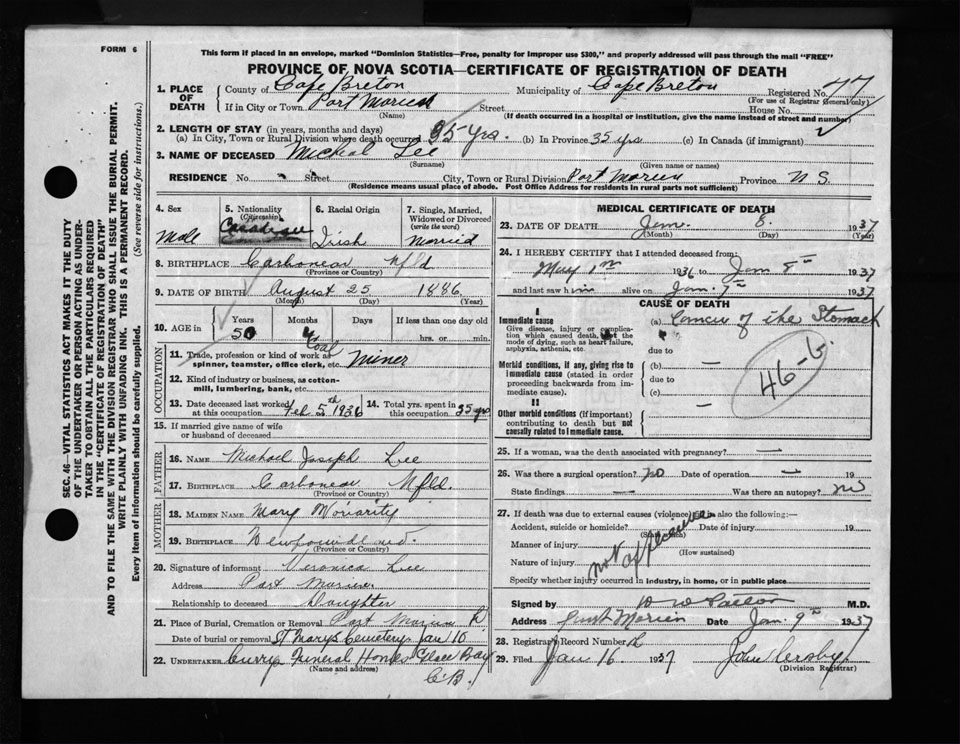 FORM 6
This form if placed in an envelope, marked "Dominion Statistics—Free, penalty for improper use $300," and properly addressed will pass through the mail "FREE"
PROVINCE OF NOVA SCOTIA—CERTIFICATE OF REGISTRATION OF DEATH
SEC. 46—VITAL STATISTICS ACT MAKES IT THE DUTY
OF THE UNDERTAKER OR PERSON ACTING AS UNDER-
TAKER TO OBTAIN ALL THE PARTICULARS REQUIRED
IN THE "CERTIFICATE OF REGISTRATION OF DEATH"
AND TO FILE THE SAME WITH THE DIVISION REGISTRAR WHO SHALL ISSUE THE BURIAL PERMIT.
WRITE PLAINLY WITH UNFADING INK. THIS IS A PERMANENT RECORD.
Every item of information should be carefully supplied. (See reverse side for instructions.)
1. PLACE OF DEATH
County of Cape Breton Municipality of Cape Breton Registered No. 77
(For use of Registrar General only)
If in City or Town Port Morien Street House No.
(Name) (If death occurred in a hospital or institution, give the name instead of street and number)
2. LENGTH OF STAY (in years, months and days)
(a) In City, Town or Rural Division where death occurred 35 yrs. (b) In Province 35 yrs (c) In Canada (if immigrant)
3. NAME OF DECEASED Micheal Lee
(Surname) (Given name or names)
RESIDENCE No. Street City, Town or Rural Division Port Morien Province N S.
(Residence means usual place of abode. Post Office Address for residents in rural parts not sufficient)
4. Sex Male
5. Nationality (Citizenship) Canadian
6. Racial Origin Irish
7. Single, Married, Widowed or Divorced (write the word) Married
8. BIRTHPLACE Carbonear Nfld
(Province or Country)
9. DATE OF BIRTH August 25 1886
(Month) (Day) (Year)
10. AGE in Years Months Days If less than one day old
50 4 hrs. or min.
OCCUPATION
11. Trade, profession or kind of work as spinner, teamster, office clerk, etc. Coal Miner
12. Kind of industry or business, as cotton-mill, lumbering, bank, etc.
13. Date deceased last worked at this occupation Feb. 5th 1936
14. Total yrs. spent in this occupation 35 yrs
15. If married give name of wife or husband of deceased
FATHER
16. NAME Michael Joseph Lee
17. BIRTHPLACE Carbonear Nfld.
(Province or Country)
MOTHER
18. MAIDEN NAME Mary Moriarity
19. BIRTHPLACE Newfoundland.
(Province or Country)
20. Signature of informant Veronica Lee
Address Port Morien
Relationship to deceased Daughter
21. Place of Burial, Cremation or Removal Port Morien R
Date of burial or removal St Marys Cemetery Jan 10
22. UNDERTAKER Curry Funeral Home Glace Bay
(Name and address) C.B.
MEDICAL CERTIFICATE OF DEATH
23. DATE OF DEATH Jan. 8. 1937
(Month) (Day) (Year)
24. I HEREBY CERTIFY that I attended deceased from:
May 1st 1936 to Jan 8th 1937
and last saw him alive on Jan. 7th 1937
CAUSE OF DEATH
I
Immediate cause
Give disease, injury or complication which caused death, not the mode of dying, such as heart failure, asphyxia, asthenia, etc.
(a) Cancer of the Stomach
due to
Morbid conditions, if any, giving rise to immediate cause (stated in order proceeding backwards from immediate cause).
(b)
due to
(c)
46-b
II
Other morbid conditions (if important) contributing to death but not causally related to immediate cause.
25. If a woman, was the death associated with pregnancy? —
26. Was there a surgical operation? no Date of operation — 19
State findings — Was there an autopsy? no
27. If death was due to external causes (violence) fill in also the following:—
Accident, suicide or homicide? Date of injury 19
(State which)
Manner of injury
(How sustained)
Nature of injury
not applicable
Specify whether injury occurred in industry, in home, or in public place
Signed by M.D.
Address Port Morien Date Jan. 9th 1937
28. Registrar's Record Number
29. Filed Jan 16 1937 John
(Division Registrar)